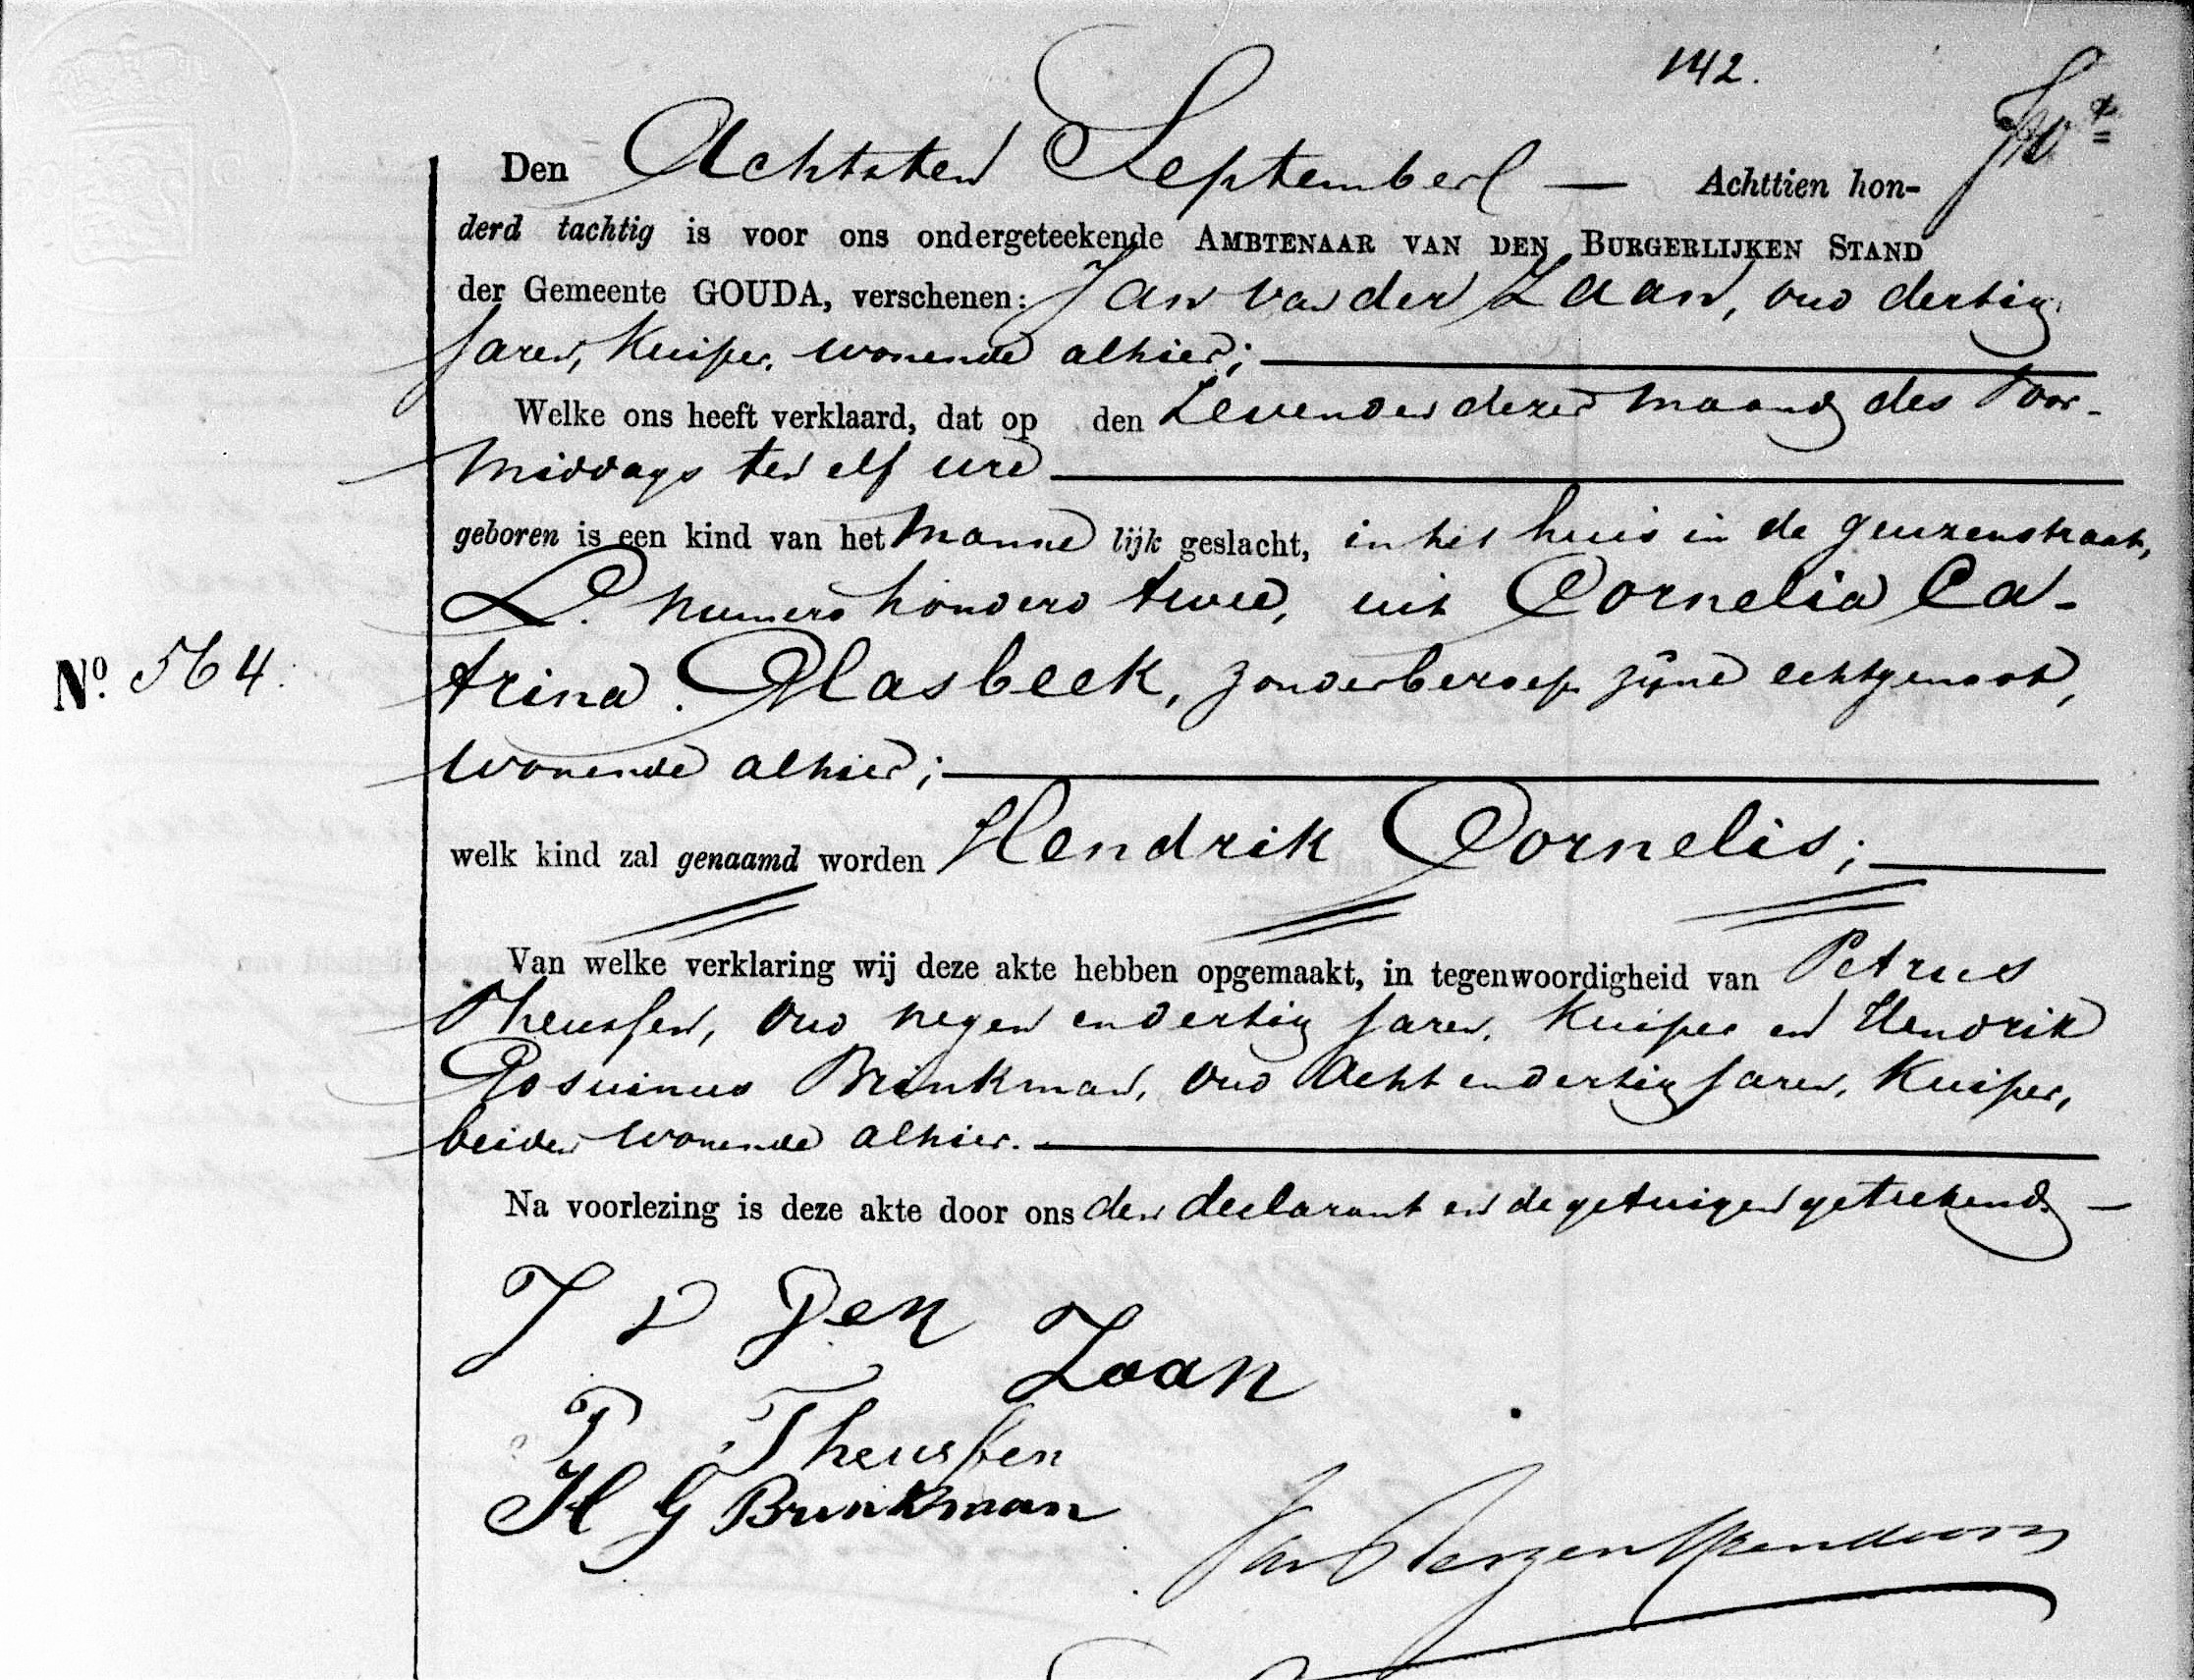 142.
Den Achtsten September — Achttien hon-
derd tachtig is voor ons ondergeteekende AMBTENAAR VAN DEN BURGERLIJKEN STAND
der Gemeente GOUDA, verschenen: Jan van der Zaan, oud dertig
Jaren, Kuiper, wonende alhier;
Welke ons heeft verklaard, dat op den Zevenden dezer maand des Voor-
middags ten elf ure
geboren is een kind van het Manne lijk geslacht, in het huis in de geuzenstraat,
L. numero honderd twee, uit Cornelia Ca-
trina Glasbeek, zonder beroep zijne echtgenoot,
wonende alhier;
No. 564.
welk kind zal genaamd worden Hendrik Cornelis;
Van welke verklaring wij deze akte hebben opgemaakt, in tegenwoordigheid van Petrus
Theussen, oud negen en dertig Jaren, Kuiper en Hendrik
Gosuinus Brinkman, oud Acht en dertig Jaren, Kuiper,
beiden wonende alhier.
Na voorlezing is deze akte door ons den declarant en de getuigen geteekend. —
J v Der Zaan
P Theussen
H G Brinkman
Van Bergen IJzendoorn